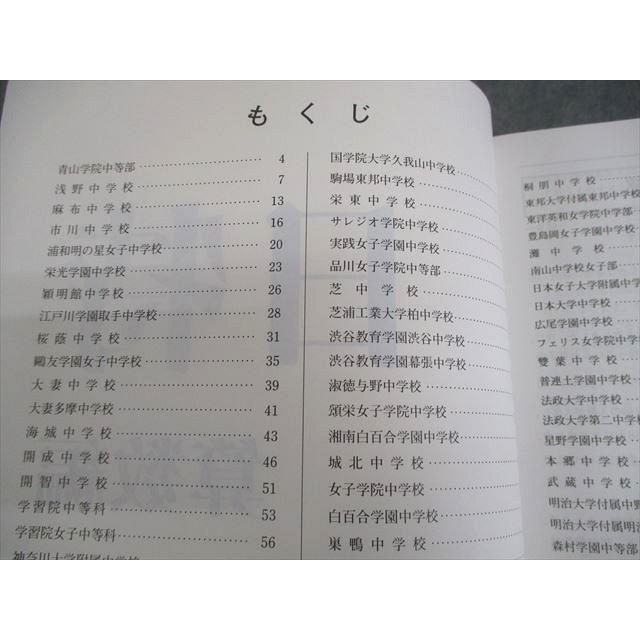 もくじ
青山学院中等部 4
浅野中学校 7
麻布中学校 13
市川中学校 16
浦和明の星女子中学校 20
栄光学園中学校 23
穎明館中学校 26
江戸川学園取手中学校 28
桜蔭中学校 31
鷗友学園女子中学校 35
大妻中学校 39
大妻多摩中学校 41
海城中学校 43
開成中学校 46
開智中学校 51
学習院中等科 53
学習院女子中等科 56
神奈川大学附属中学校
国学院大学久我山中学校
駒場東邦中学校
栄東中学校
サレジオ学院中学校
実践女子学園中学校
品川女子学院中等部
芝中学校
芝浦工業大学柏中学校
渋谷教育学園渋谷中学校
渋谷教育学園幕張中学校
淑徳与野中学校
頌栄女子学院中学校
湘南白百合学園中学校
城北中学校
女子学院中学校
白百合学園中学校
巣鴨中学校
桐朋中学校
東邦大学付属東邦中学校
東洋英和女学院中学部
豊島岡女子学園中学校
灘中学校
南山中学校女子部
日本女子大学附属中学
日本大学中学校
広尾学園中学校
フェリス女学院中学
雙葉中学校
普連土学園中学校
法政大学中学校
法政大学第二中学校
星野学園中学校
本郷中学校
武蔵中学校
明治大学付属中野
明治大学付属明
森村学園中等部